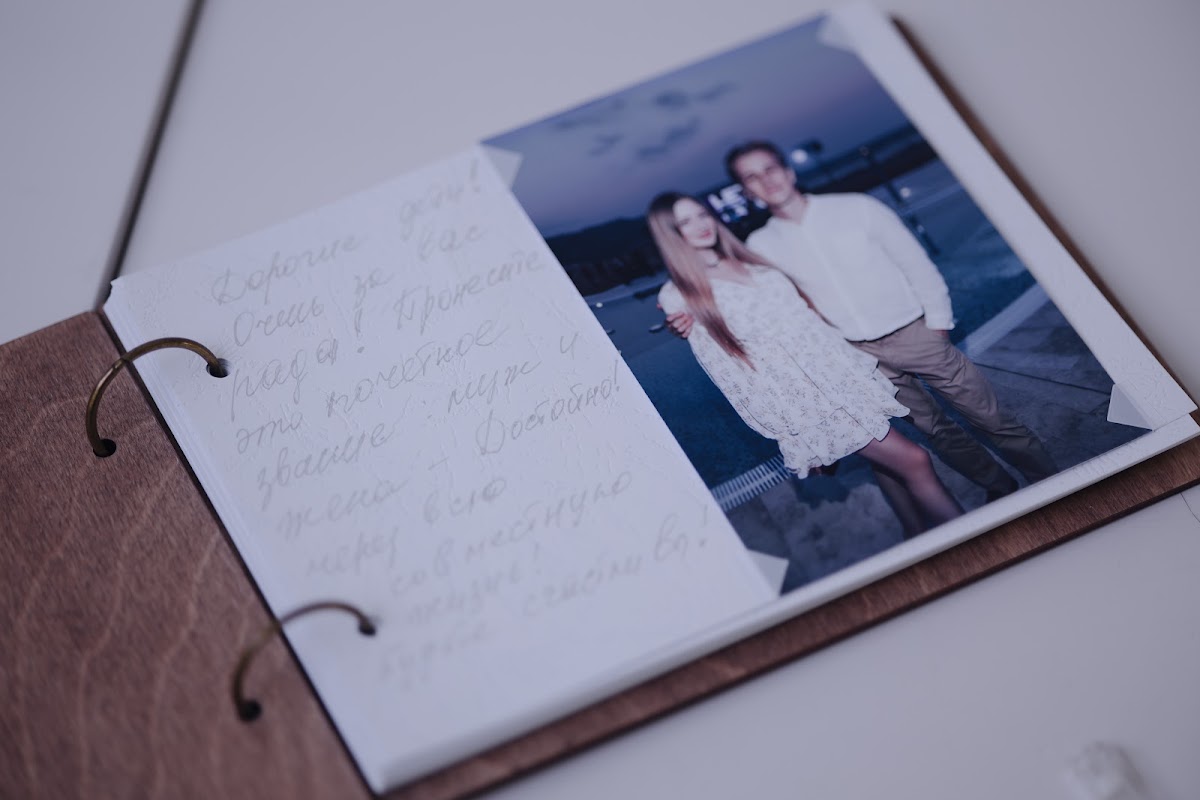 Дорогие дети!
Очень за вас
рада! Пронесите
это почётное
звание муж и
жена - Достойно!
через всю
совместную
жизнь!
Будьте счастливы!